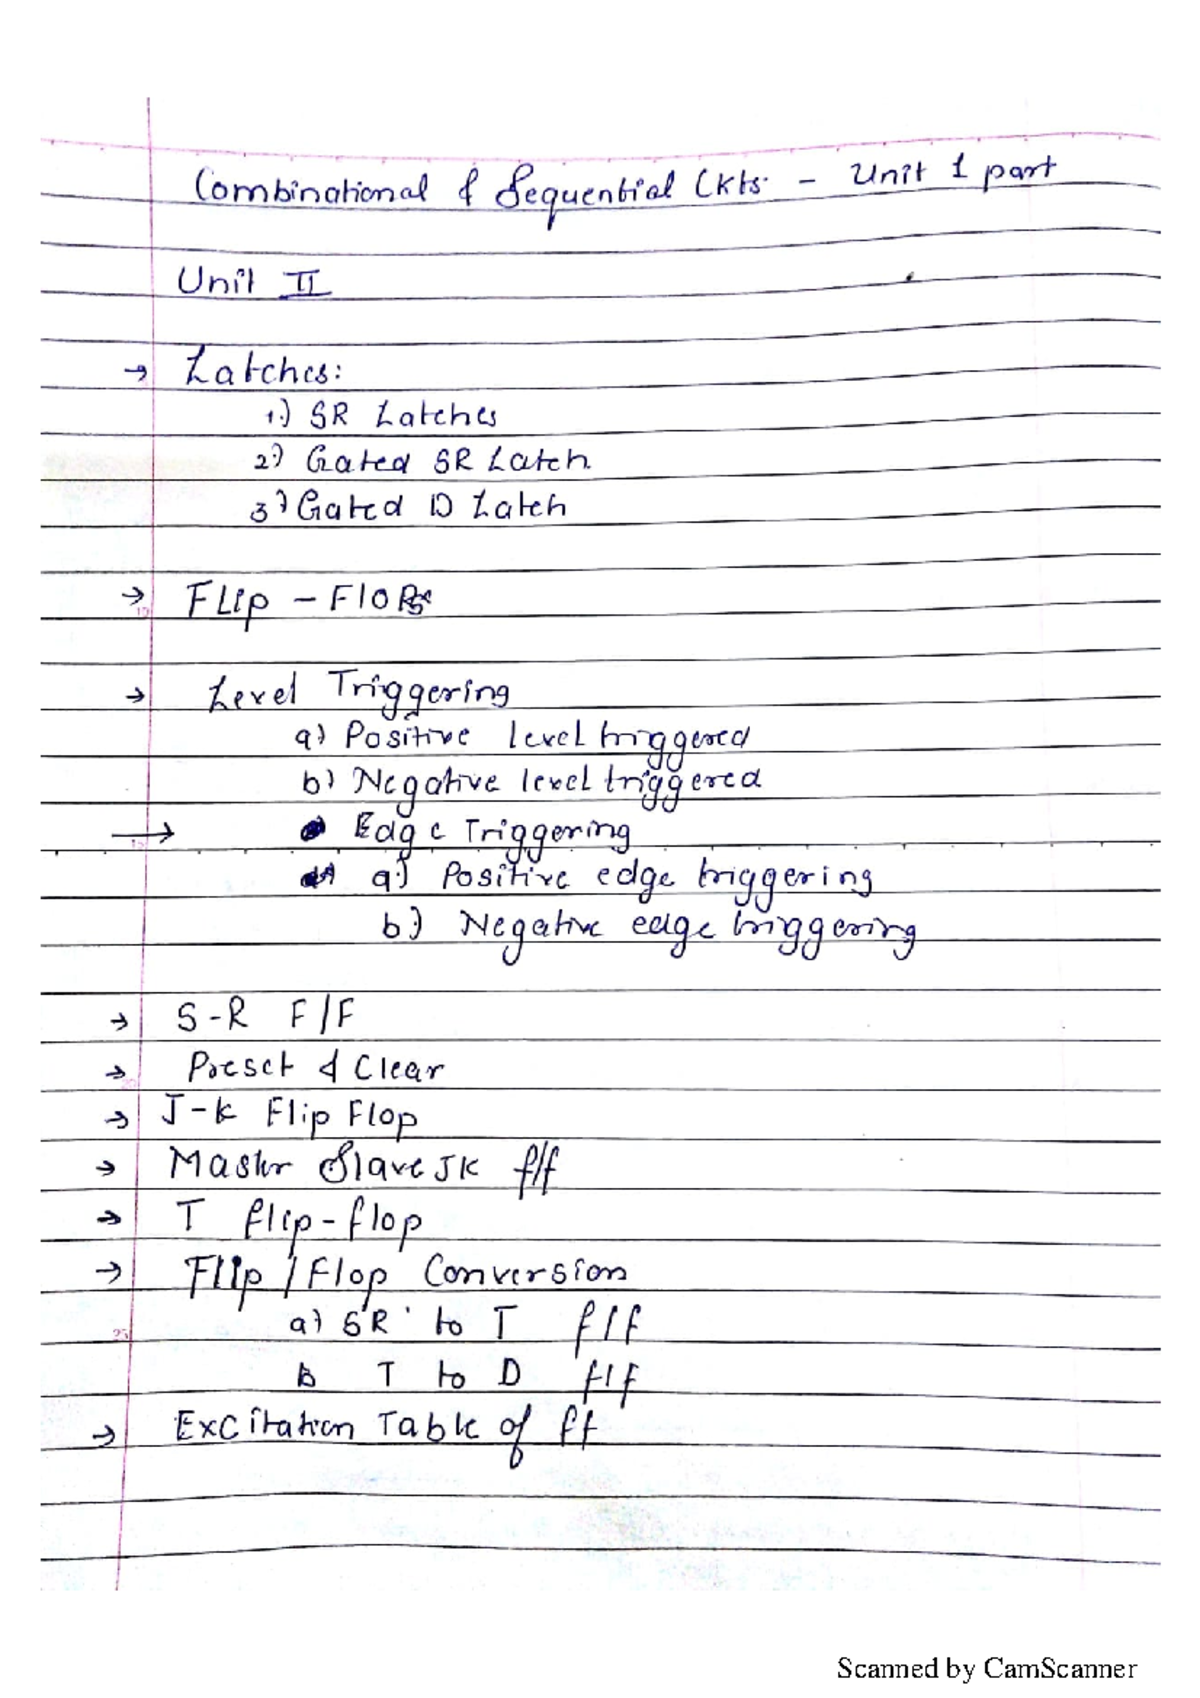 Combinational & Sequential Ckts. - Unit 1 part
Unit II
→ Latches:
1.) SR Latches
2.) Gated SR Latch
3) Gated D Latch
→ FLip - Flops
→ Level Triggering
a) Positive level triggered
b) Negative level triggered
→ Edge Triggering
a.) Positive edge triggering
b.) Negative edge triggering
→ S-R F/F
→ Preset & Clear
→ J-K Flip Flop
→ Master Slave JK f/f
→ T flip-flop
→ Flip/Flop Conversion
a) SR to T f/f
b T to D f/f
→ Excitation Table of ff
Scanned by CamScanner